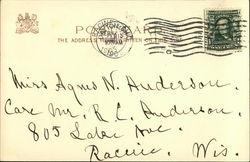 POST CARD
THE ADDRESS
Miss Agnes N. Anderson.
Care Mr. R. C. Anderson.
805 Lake Ave.
Racine, Wis.